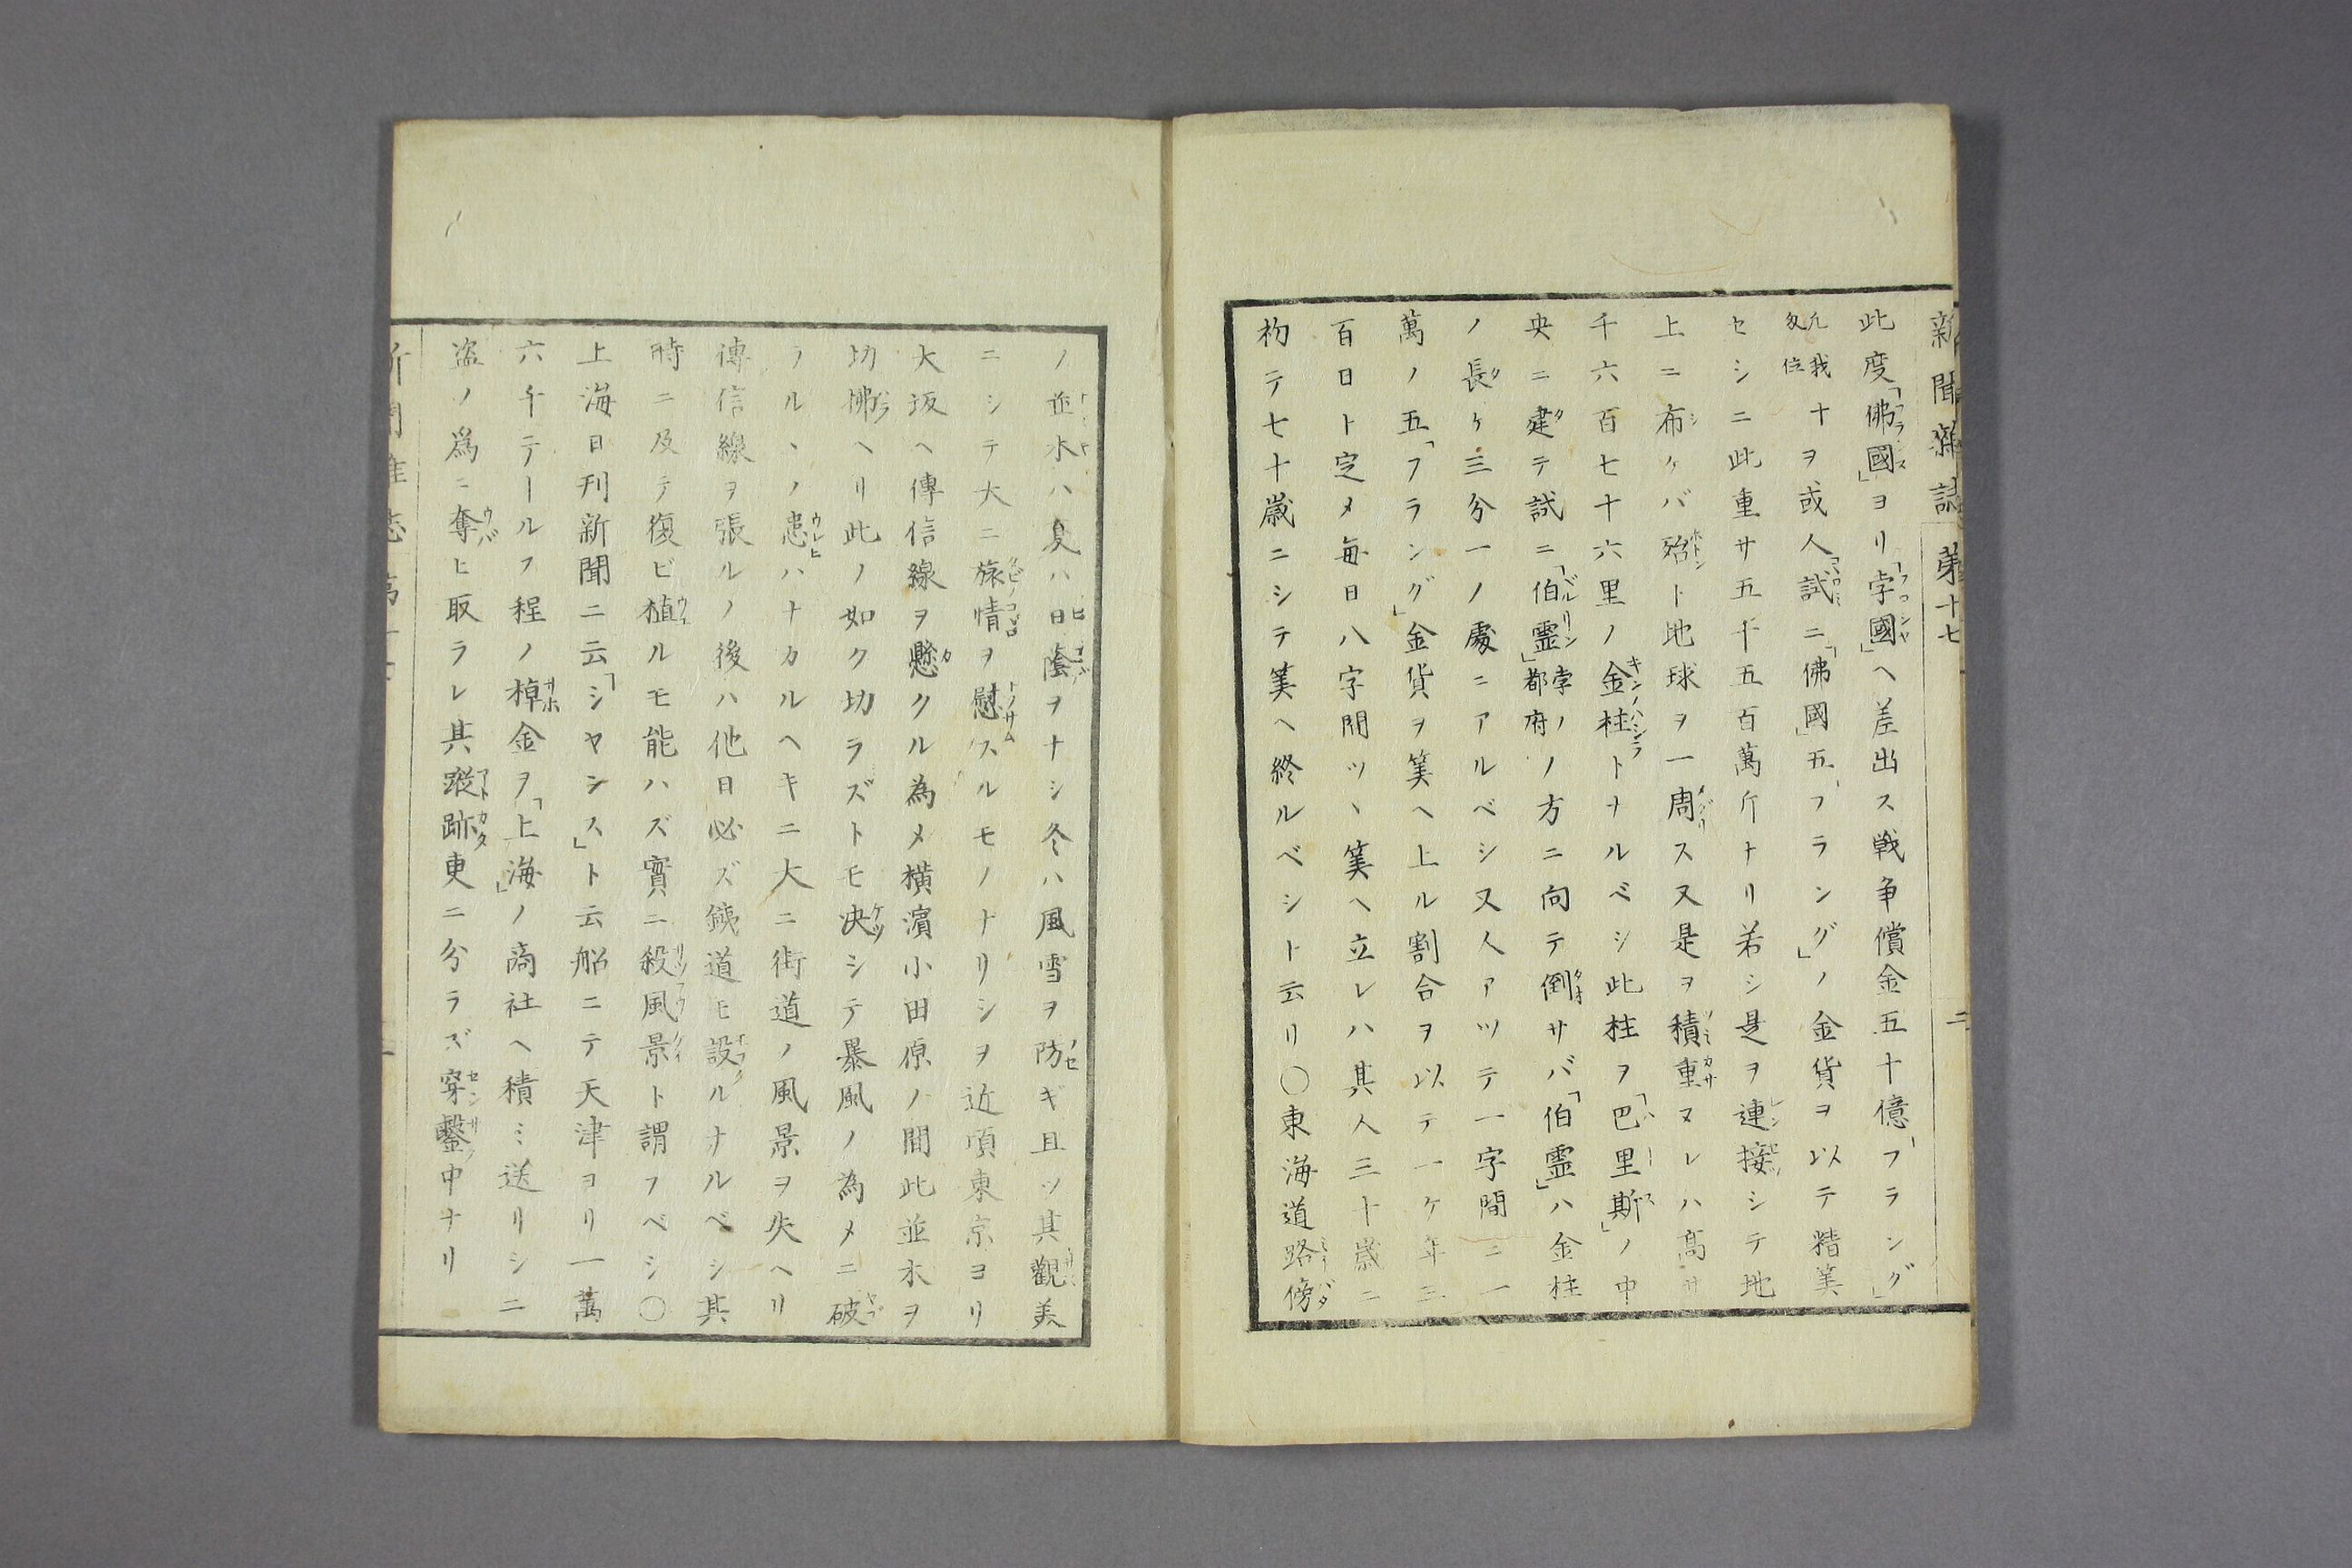 新聞雜誌 第十七 二
此度「佛國」ヨリ「孛國」ヘ差出ス戦争償金五十億「フラング」
凡我
夂位十ヲ或人「試ニ「佛國」五「フラング」ノ金貨ヲ以テ精筭
セシニ此重サ五千五百萬斤ナリ若シ是ヲ連接シテ地
上ニ布ケバ殆ト地球ヲ一周ス又是ヲ積重ヌレハ高サ
千六百七十六里ノ金柱トナルベシ此柱ヲ「巴里斯」ノ中
央ニ建テ試ニ「伯霊」孛ノ都府ノ方ニ向テ倒サバ「伯霊」ハ金柱
ノ長ケ三分一ノ處ニアルベシ又人アツテ一字間ニ一
萬ノ五「フラング」金貨ヲ筭ヘ上ル割合ヲ以テ一ケ年三
百日ト定メ毎日八字間ツヽ筭ヘ立レハ其人三十歳ニ
初テ七十歳ニシテ筭ヘ終ルベシト云リ〇東海道路傍
ノ並木ハ夏ハ日蔭ヲナシ冬ハ風雪ヲ防ギ且ツ其觀美
ニシテ大ニ旅情ヲ慰スルモノナリシヲ近頃東京ヨリ
大坂ヘ傳信線ヲ懸クル為メ横濵小田原ノ間此並木ヲ
切拂ヘリ此ノ如ク切ラズトモ决シテ暴風ノ為メニ破
ラルヽノ患ハナカルヘキニ大ニ街道ノ風景ヲ失ヘリ
傳信線ヲ張ルノ後ハ他日必ズ鐵道モ設ルナルベシ其
時ニ及テ復ビ植ルモ能ハズ實ニ殺風景ト謂フベシ〇
上海日刊新聞ニ云「シヤンス」ト云船ニテ天津ヨリ一萬
六千テールフ程ノ棹金ヲ「上海」ノ商社ヘ積ミ送リシニ
盗ノ爲ニ奪ヒ取ラレ其蹤跡更ニ分ラズ穿鑿中ナリ